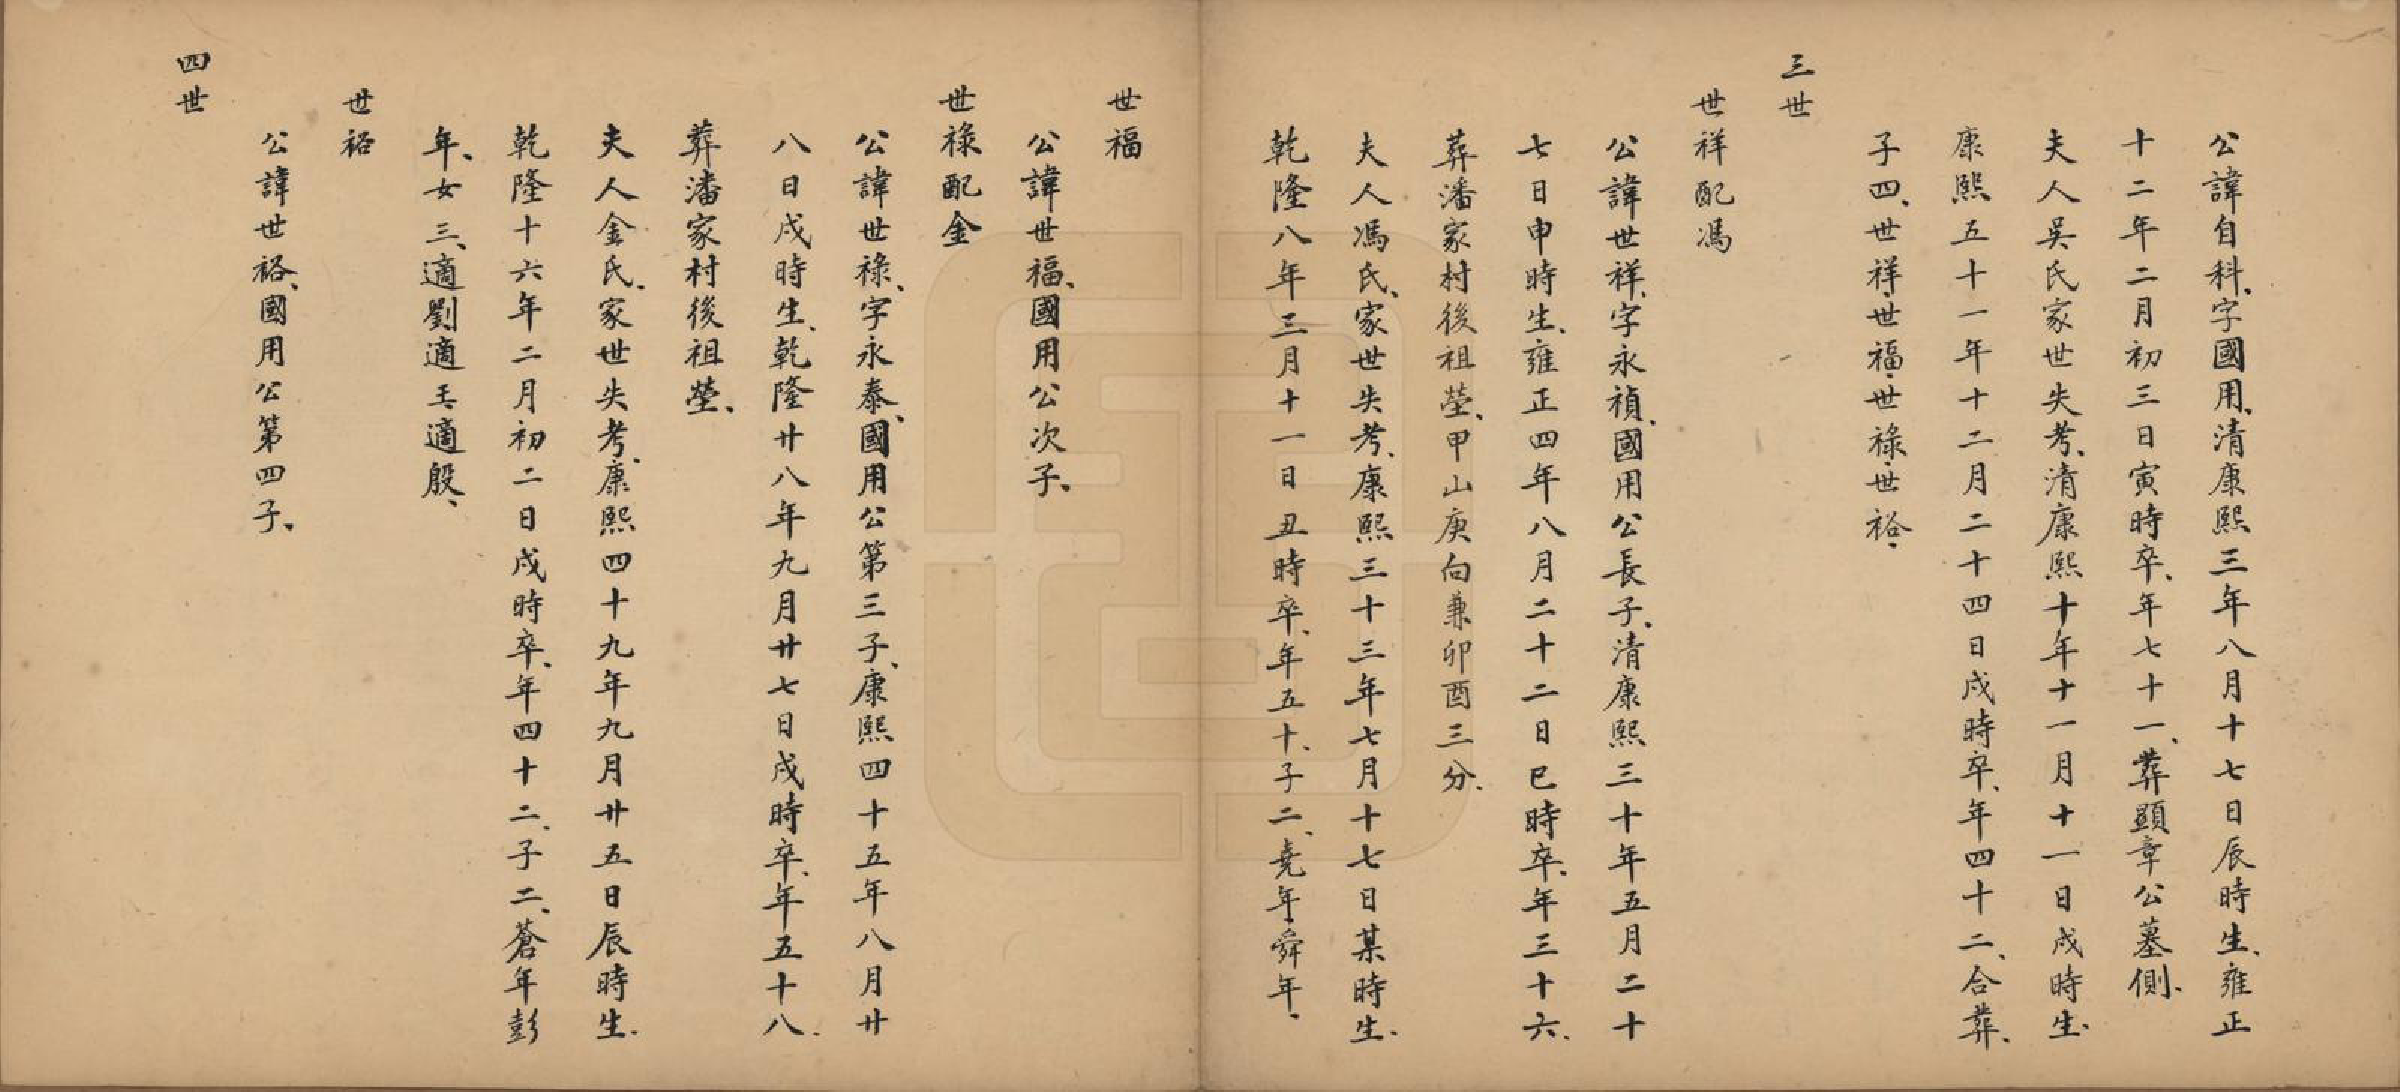 公諱自科、字國用、清康熙三年八月十七日辰時生、雍正
十二年二月初三日寅時卒、年七十一、葬顯章公墓側、
夫人吴氏家世失考、清康熙十年十一月十一日戌時生、
康熙五十一年十二月二十四日戌時卒、年四十二、合葬、
子四、世祥、世福、世祿、世裕、
三世
世祥配馮
公諱世祥、字永禎、國用公長子、清康熙三十年五月二十
七日申時生、雍正四年八月二十二日巳時卒、年三十六、
葬潘家村後祖塋、甲山庚向兼卯酉三分、
夫人馮氏、家世失考、康熙三十三年七月十七日某時生、
乾隆八年三月十一日丑時卒、年五十、子二、堯年、舜年、
世福
公諱世福、國用公次子、
世祿配金
公諱世祿、字永泰、國用公第三子、康熙四十五年八月廿
八日戌時生、乾隆廿八年九月廿七日戌時卒、年五十八、
葬潘家村後祖塋、
夫人金氏、家世失考、康熙四十九年九月廿五日辰時生、
乾隆十六年二月初二日戌時卒、年四十二、子二、蒼年彭
年、女三、適劉適王適殷、
世裕
公諱世裕、國用公第四子、
四世